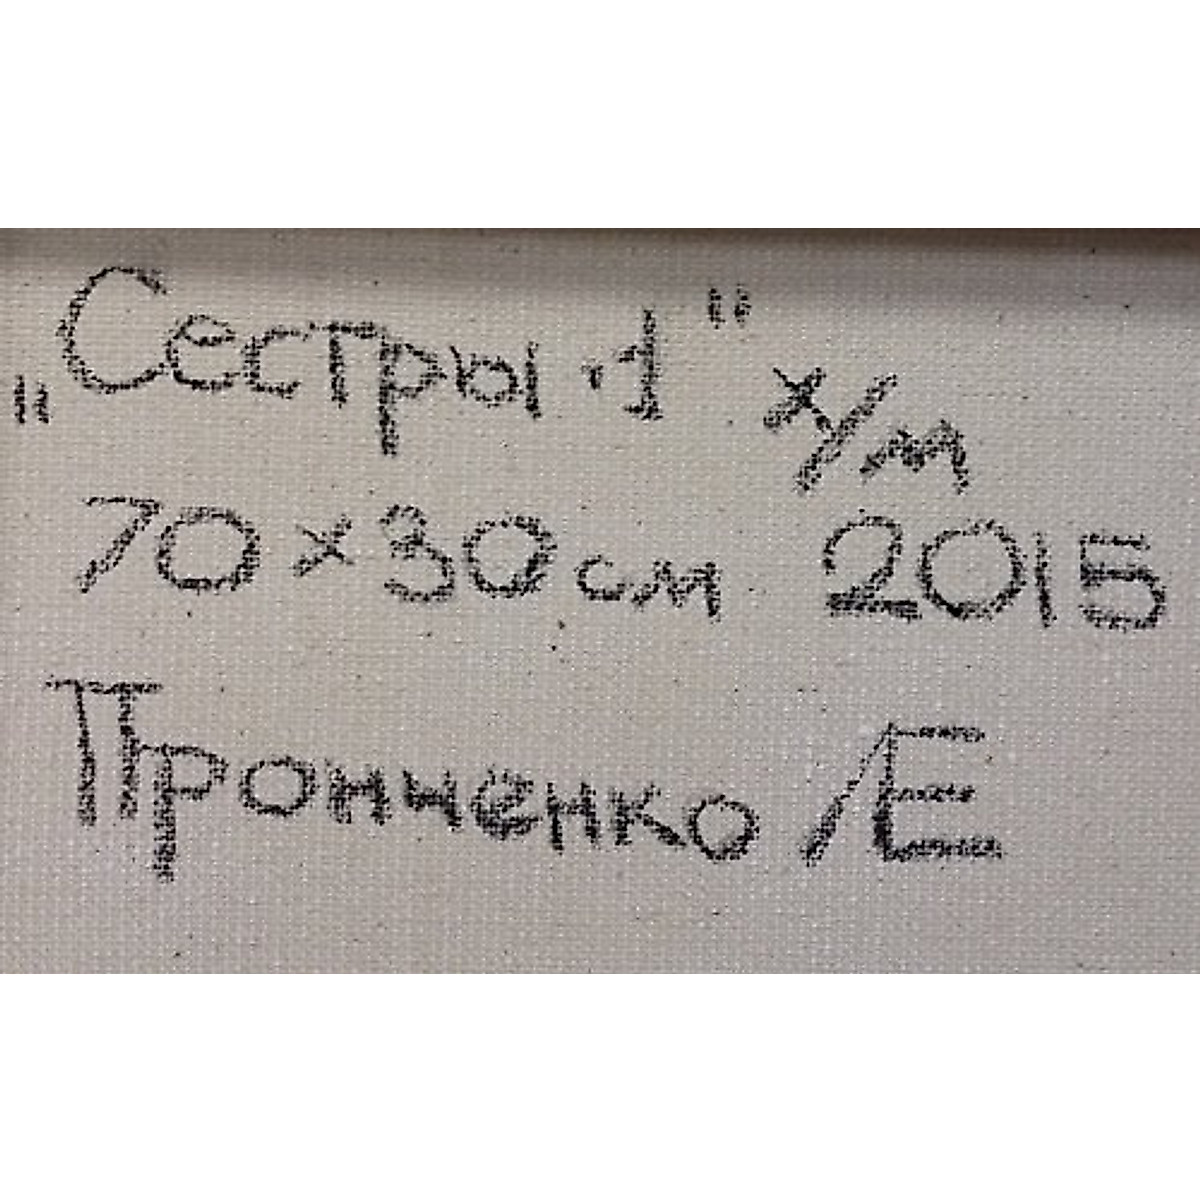 „Сестры·1" х/м
70×30 см 2015
Пронченко /Е